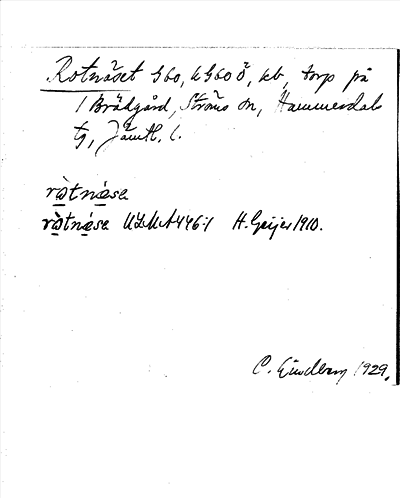 Rotnäset G60, k G60 Ö, kb, torp på
1 Brådgård, Ströms sn, Hammerdals
tg, Jämtl. l.
rò̤tnǽsa
rò̤tnǽsa ULMA 446:1 H. Geijer 1910.
C. Lindberg 1929.